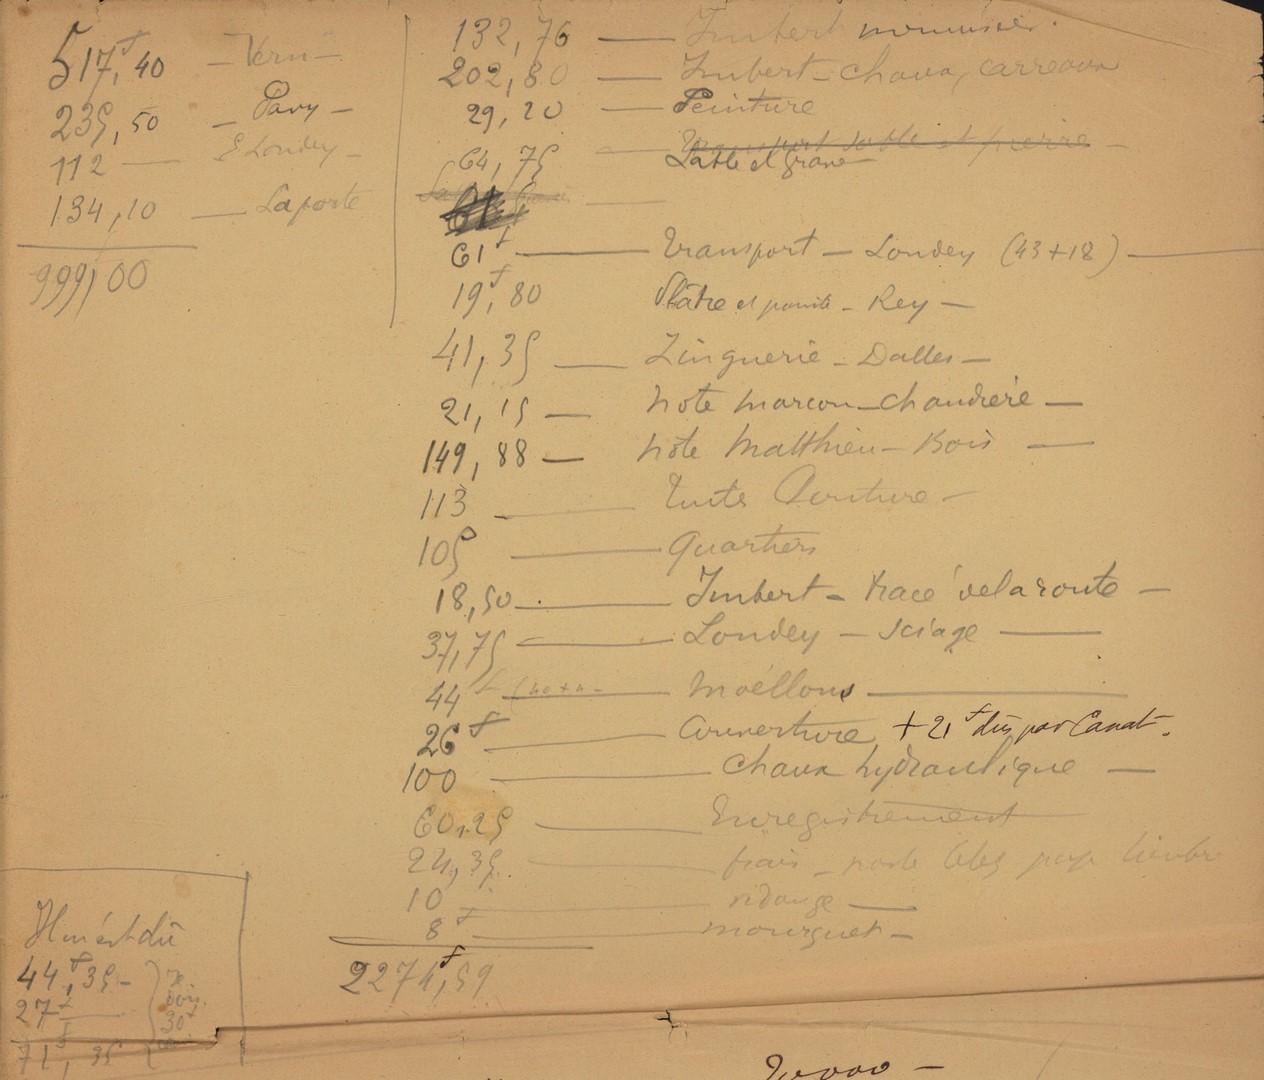 517,f 40 — Veru —
235,50 — Pavy —
112 — E Londey —
134,10 — Laporte
999,00
132,76 — Imbert menuisier.
202,80 — Imbert - chaux, carreaux
29,20 — Peinture
64,75 — Transport sable et pierre —
Sable et grave
61
61f — Transport - Londey (43+18) —
19,f 80 Plâtre et pointe - Rey —
41,35 — Zinguerie - Dalles —
21,15 — Note marcon - chaudière —
149,88 — Note Matthieu - Bois —
113 — Toiture —
105 — quartiers
18,50 — Imbert - tracé de la route —
37,75 — Londey - sciage —
44f (40+4 — Moëllons —
26f — Couverture + 21f dûs par Canat -.
100 — Chaux hydraulique —
60,25 — Enregistrement
24,35 — frais - poste télég papr timbre
10 — vidange —
8f — mourguet —
2274,f 59
Il m'est dû
44,f 35 -
27f
30f
71f, 35